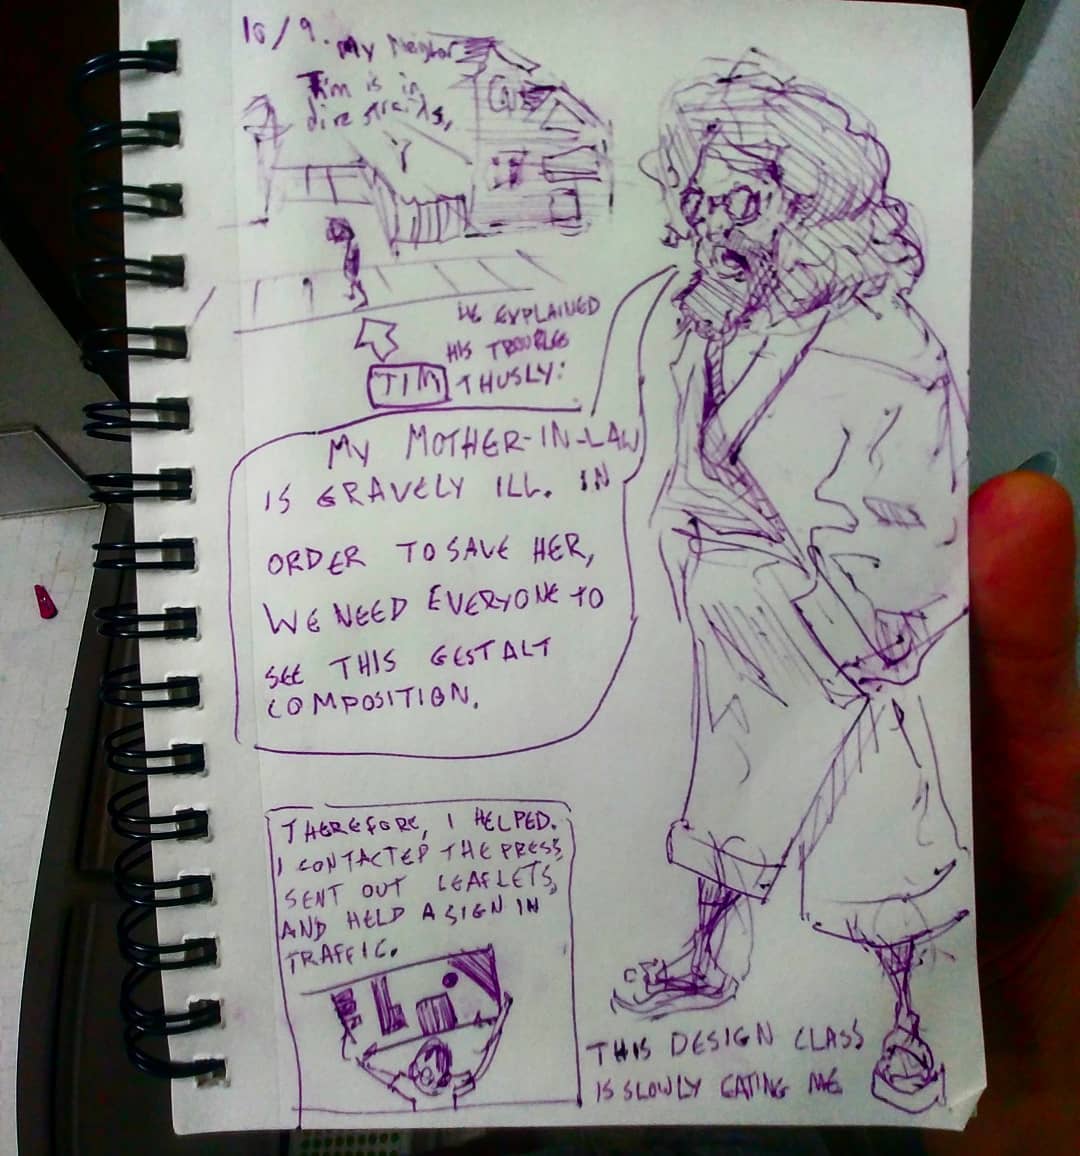 10/9. My Neighbor
Tim is in
dire straids,
HE EXPLAINED
HIS TROUBLES
THUSLY:
TIM
MY MOTHER-IN-LAW
IS GRAVELY ILL. IN
ORDER TO SAVE HER,
WE NEED EVERYONE TO
SEE THIS GESTALT
COMPOSITION.
THEREFORE, I HELPED.
I CONTACTED THE PRESS
SENT OUT LEAFLETS,
AND HELD A SIGN IN
TRAFFIC.
THIS DESIGN CLASS
IS SLOWLY EATING ME